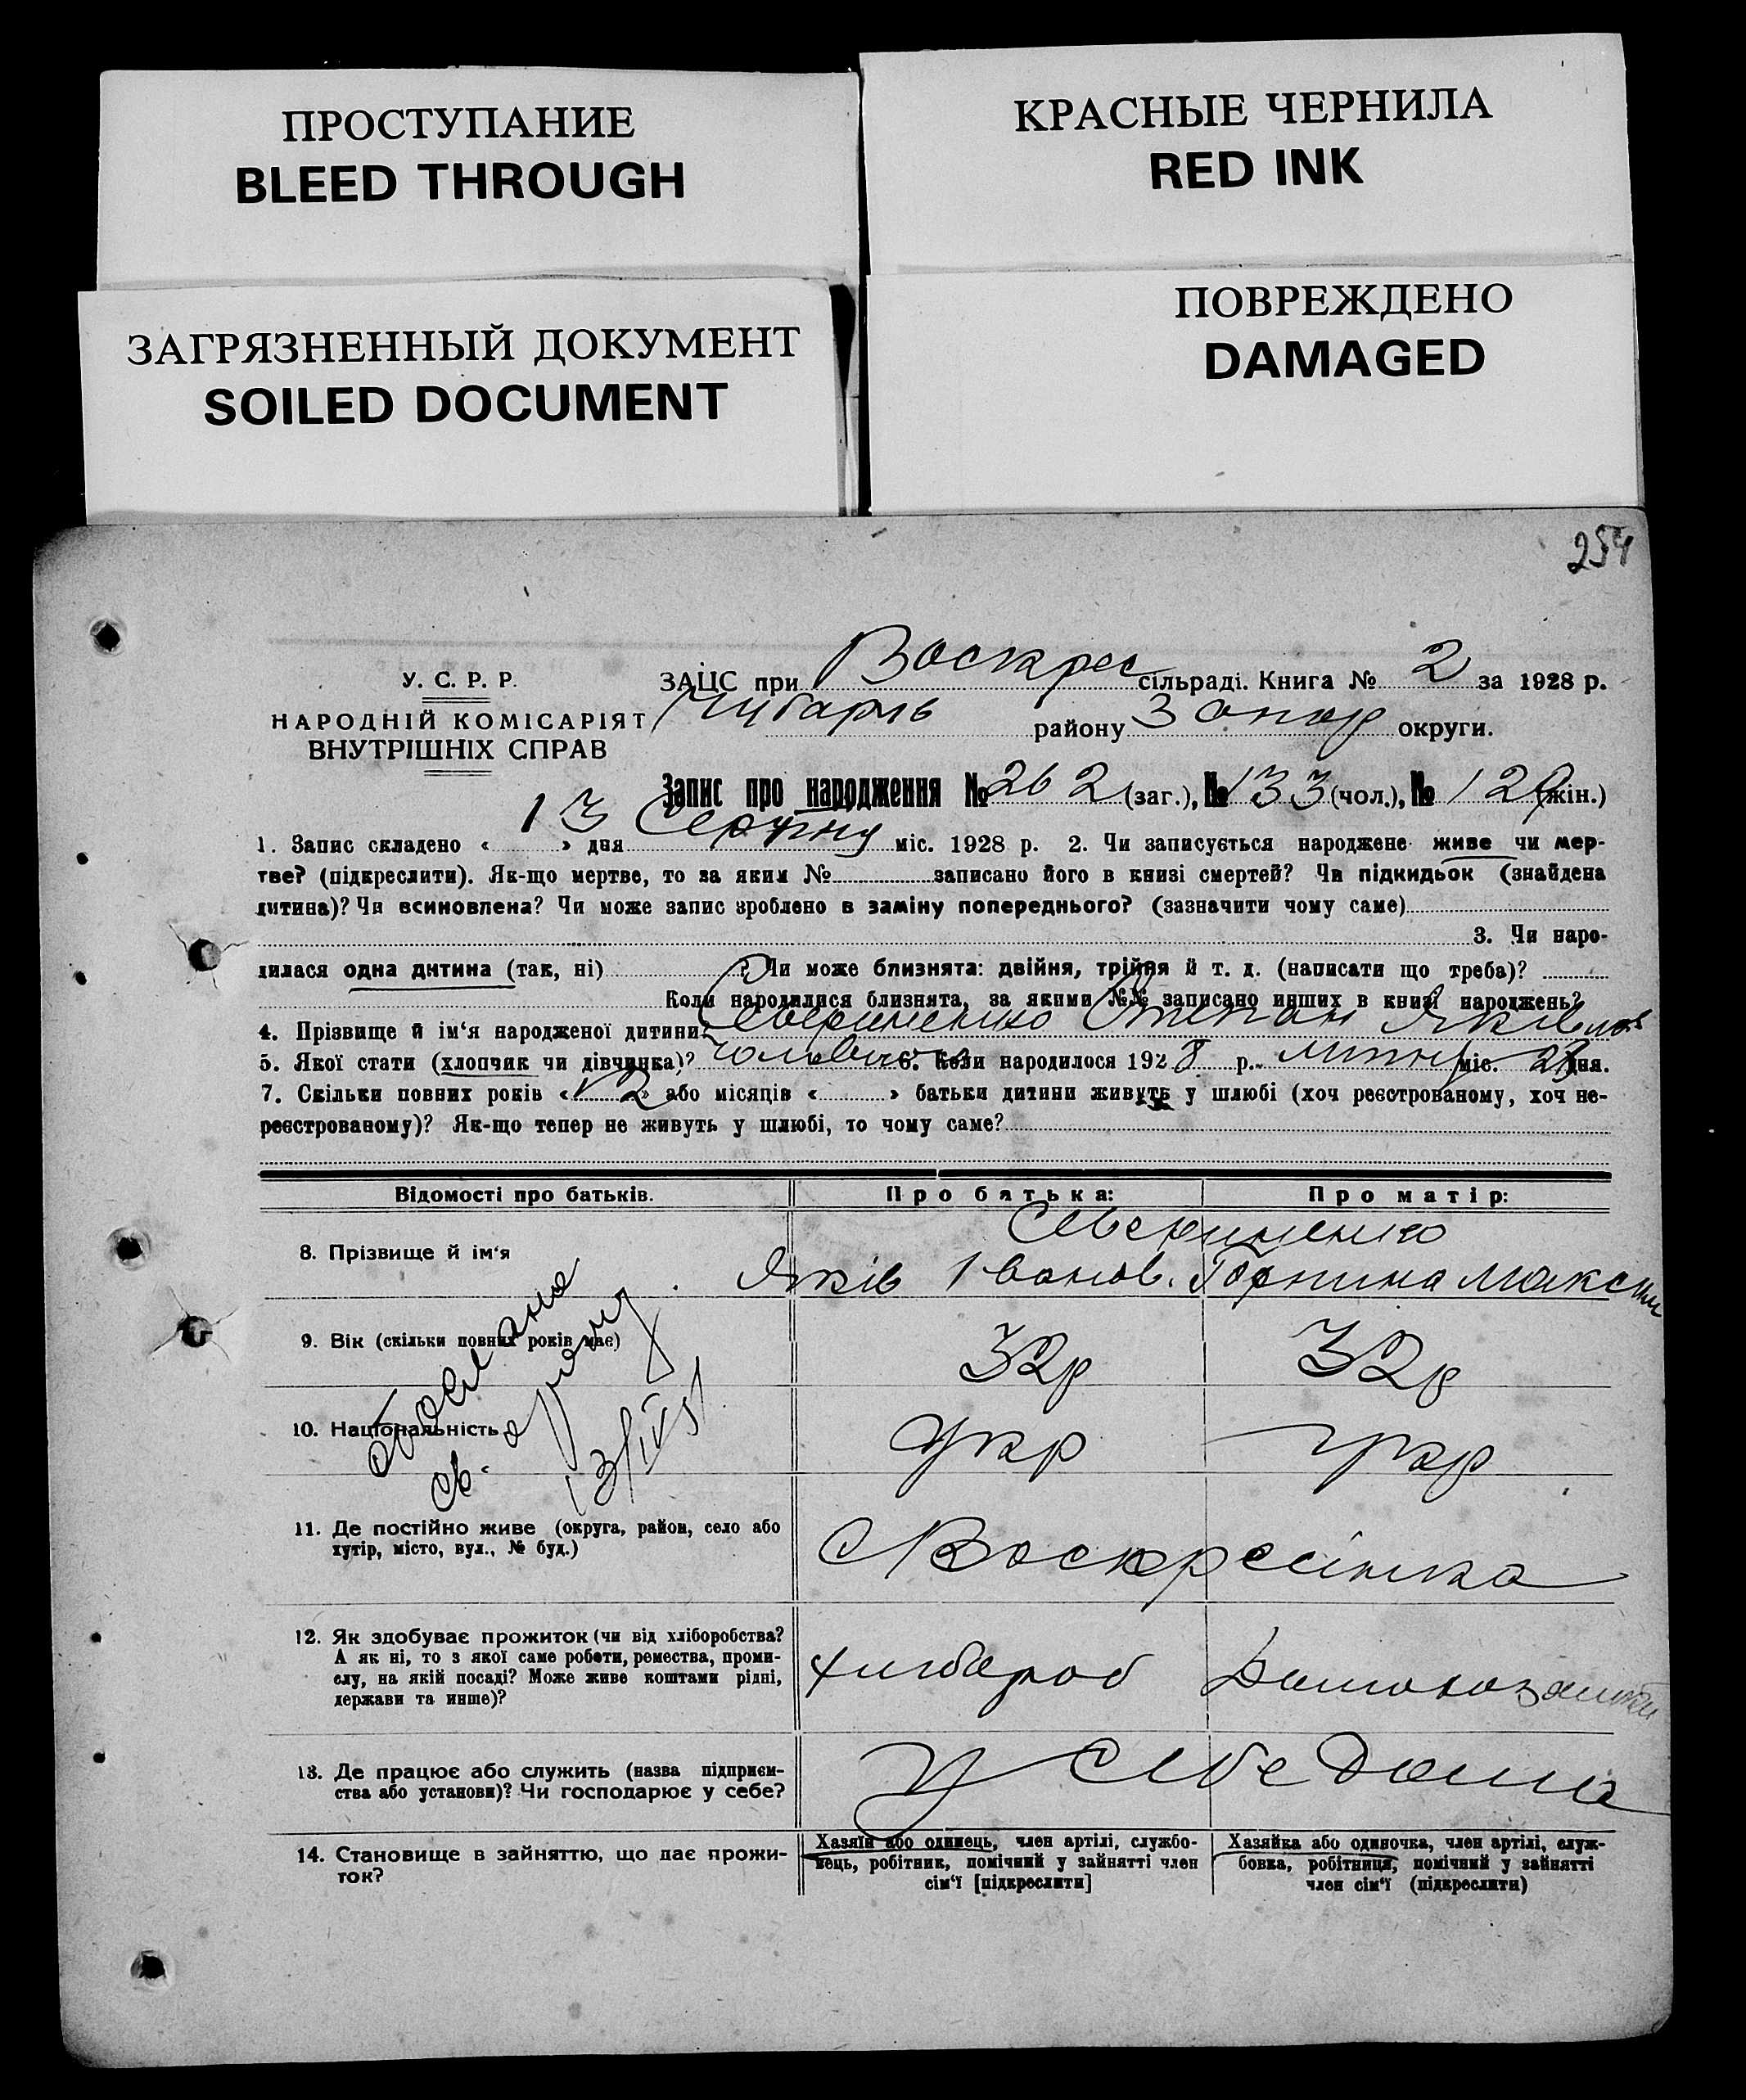 ПРОСТУПАНИЕ
BLEED THROUGH
КРАСНЫЕ ЧЕРНИЛА
RED INK
ЗАГРЯЗНЕННЫЙ ДОКУМЕНТ
SOILED DOCUMENT
ПОВРЕЖДЕНО
DAMAGED
254
У. С. Р. Р.
НАРОДНІЙ КОМІСАРІЯТ
ВНУТРІШНІХ СПРАВ
ЗАЦС при Воскрес сільраді. Книга № 2 за 1928 р.
Чубарів району Запор округи.
Запис про народження № 262 (заг.), № 133 (чол.), № 129 (жін.)
1. Запис складено « 13 » дня Серпня міс. 1928 р. 2. Чи записується народжене живе чи мер-
тве? (підкреслити). Як-що мертве, то за яким № записано його в книзі смертей? Чи підкидьок (знайдена
дитина)? Чи всиновлена? Чи може запис зроблено в заміну попереднього? (зазначити чому саме)
3. Чи наро-
дилася одна дитина (так, ні) ? Чи може близнята: двійня, трійня й т. д. (написати що треба)?
Коли народилися близнята, за якими №№ записано инших в книзі народжень?
4. Прізвище й ім'я народженої дитини: Северименко Степан Яківлов
5. Якої стати (хлопчик чи дівчинка)? чоловіча 6. Коли народилося 1928 р. липня міс. 23 дня.
7. Скільки повних років « 12 » або місяців « » батьки дитини живуть у шлюбі (хоч реєстрованому, хоч не-
реєстрованому)? Як-що тепер не живуть у шлюбі, то чому саме?
Відомості про батьків. Про батька: Про матір:
Северименко
8. Прізвище й ім'я Яків Іванов. Горпина Максим
9. Вік (скільки повних років має) 32р 32р
10. Національність укр укр
11. Де постійно живе (округа, район, село або
хутір, місто, вул., № буд.)
с Воскресінка
12. Як здобуває прожиток (чи від хліборобства?
А як ні, то з якої саме роботи, ремества, проми-
слу, на якій посаді? Може живе коштами рідні,
держави та инше)?
хлібароб Домохозяйка
13. Де працює або служить (назва підприєм-
ства або установи)? Чи господарює у себе?
у себе дома
14. Становище в зайняттю, що дає прожи-
ток?
Хазяїн або одинець, член артілі, службо-
вець, робітник, помічний у зайнятті член
сім'ї [підкреслити]
Хазяйка або одиночка, член артілі, служ-
бовка, робітниця, помічний у зайнятті
член сім'ї (підкреслити)